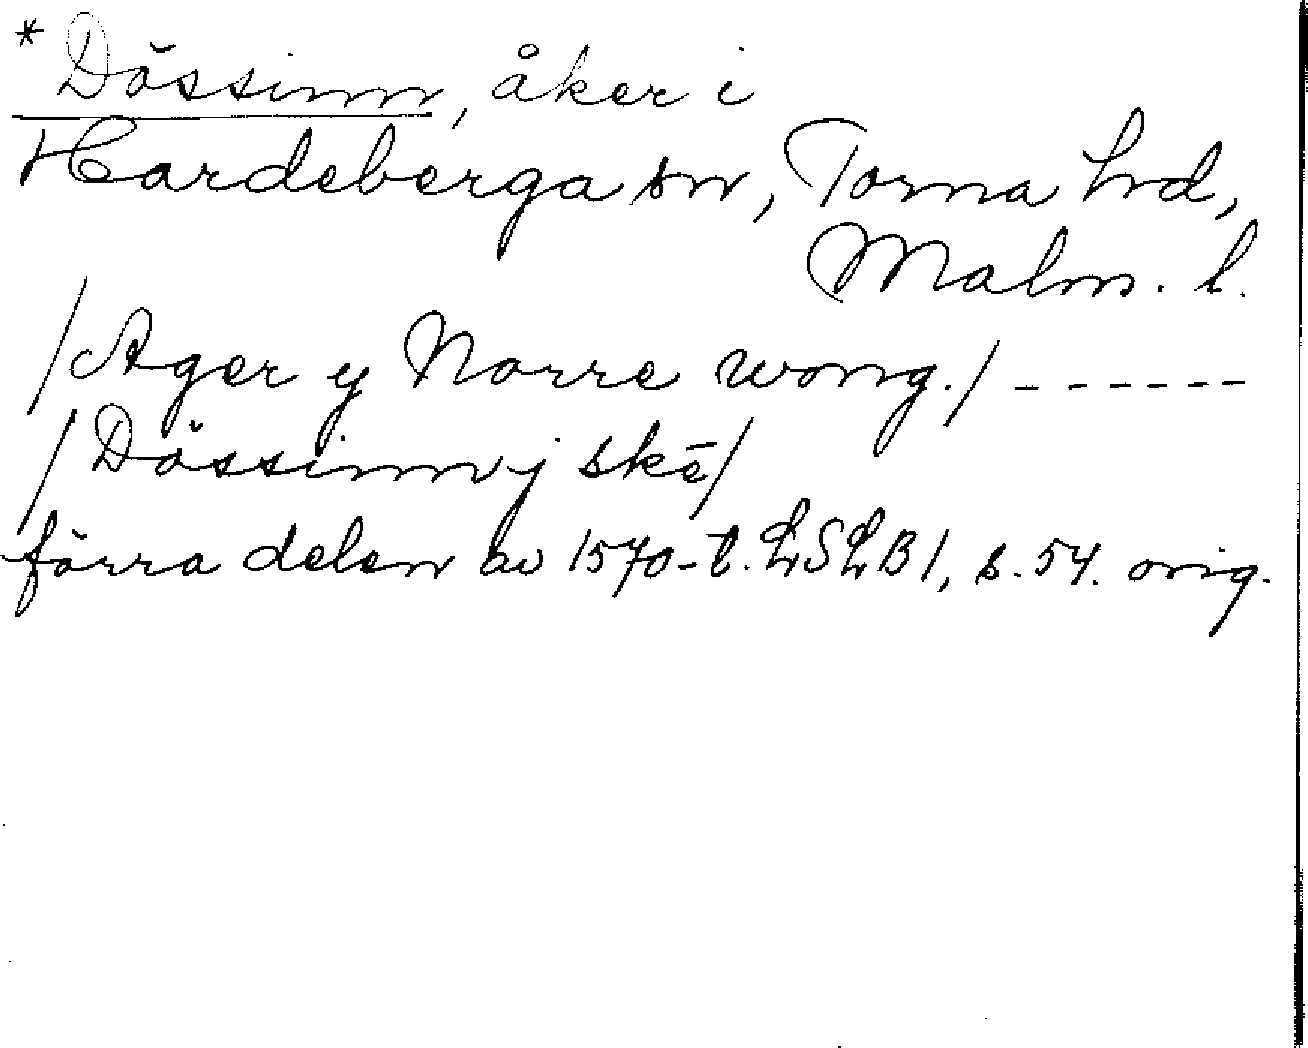 * Dössinn, åker i
Hardeberga sn, Torna hrd,
Malm. l.
/Ager y Norre wong./ ------
/Dössinn j skē/
förra delen av 1570-t. LSLB1, s. 54. orig.